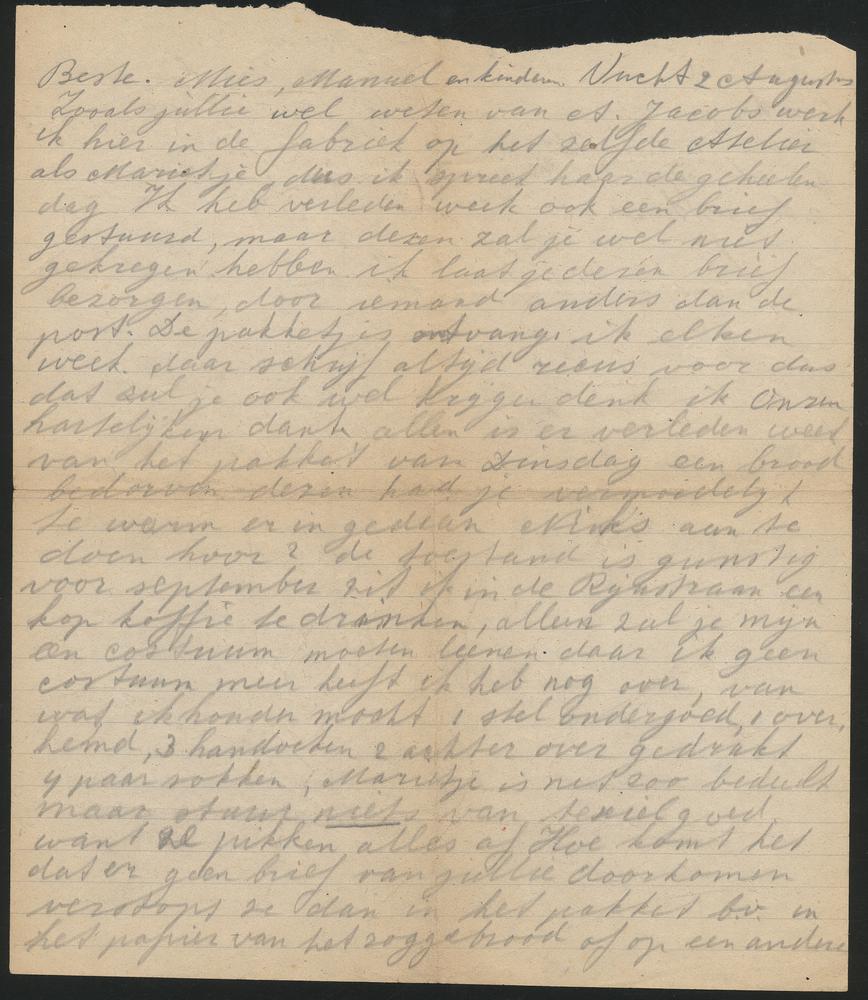 Beste. Mies, Manuel en kinderen. Vucht 2 Augustus
Zooals jullie wel weten van A. Jacobs werk
ik hier in de fabriek op het zelfde Atelier
als Marietje, dus ik spreek haar de geheelen
dag Ik heb verleden week ook een brief
gestuurd, maar dezen zal je wel niet
gekregen hebben ik laat je dezen brief
bezorgen, door iemand anders dan de
post. De pakketjes ontvang ik elken
week. daar schrijf altijd recus voor dus
dat zul je ook wel krijgen denk ik Onzen
hartelijken dank allen is er verleden week
van het pakket van Dinsdag een brood
bedorven dezen had je vermoedelijk
te warm er in gedaan Niks aan te
doen hoor? de toestand is gunstig
voor september zit ik in de Rijnstraan een
kop koffie te drinken, alleen zul je mijn
een costuum moeten leenen daar ik geen
costuum meer heeft ik heb nog over, van
wat ik houden mocht 1 stel ondergoed, 1 over,
hemd, 3 handoeken 2 achter over gedrukt
4 paar sokken, Marietje is net zoo bedeelt
maar stuur niets van texielgoed
want ze pikken alles af Hoe komt het
dat er geen brief van jullie doorkomen
verstopt ze dan in het pakket b.v. in
het papier van het roggebrood of op een andere